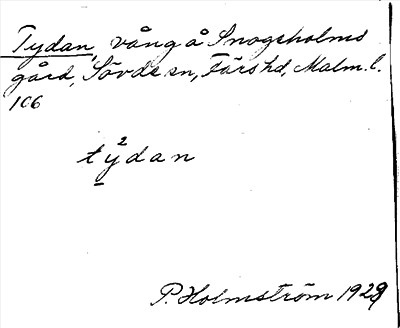 Tydan, vång å Snogeholms
gård, Sövde sn, Färs hd, Malm. l.
106
ty̱²dan
P. Holmström 1929